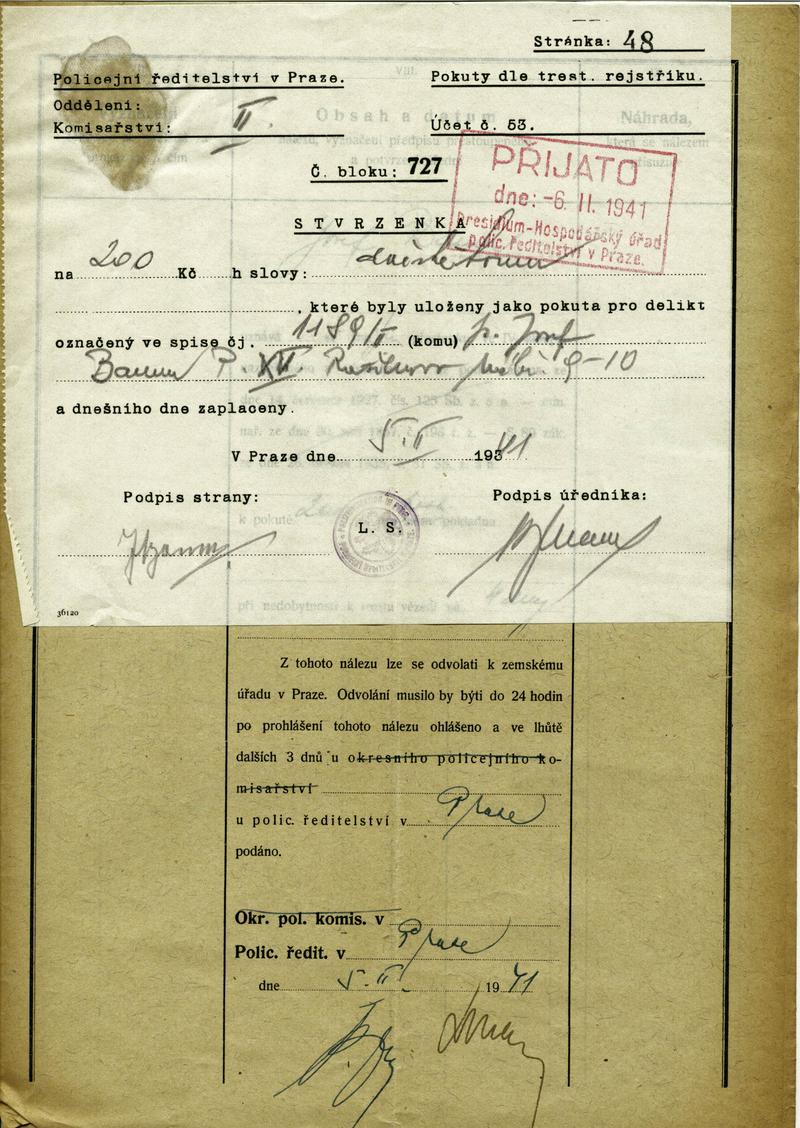 Stránka: 48
Policejní ředitelství v Praze.
Pokuty dle trest. rejstříku.
Oddělení:
Komisařství: II
Účet č. 53.
Č. bloku: 727
PŘIJATO
dne: -6. II. 1941
Presidium-Hospodářský úřad
polic. ředitelství v Praze.
STVRZENKA
na 200 Kč h slovy: dvěstě korun
, které byly uloženy jako pokuta pro delikt
označený ve spise čj. 1189/II (komu) p. Josef
P. XVI. 9-10
a dnešního dne zaplaceny.
V Praze dne 5. II 1941
Podpis strany:
Podpis úředníka:
L. S.
36120
Z tohoto nálezu lze se odvolati k zemskému
úřadu v Praze. Odvolání musilo by býti do 24 hodin
po prohlášení tohoto nálezu ohlášeno a ve lhůtě
dalších 3 dnů u okresního policejního ko-
misařství
u polic. ředitelství v Praze
podáno.
Okr. pol. komis. v
Polic. ředit. v Praze
dne 5. II. 1941